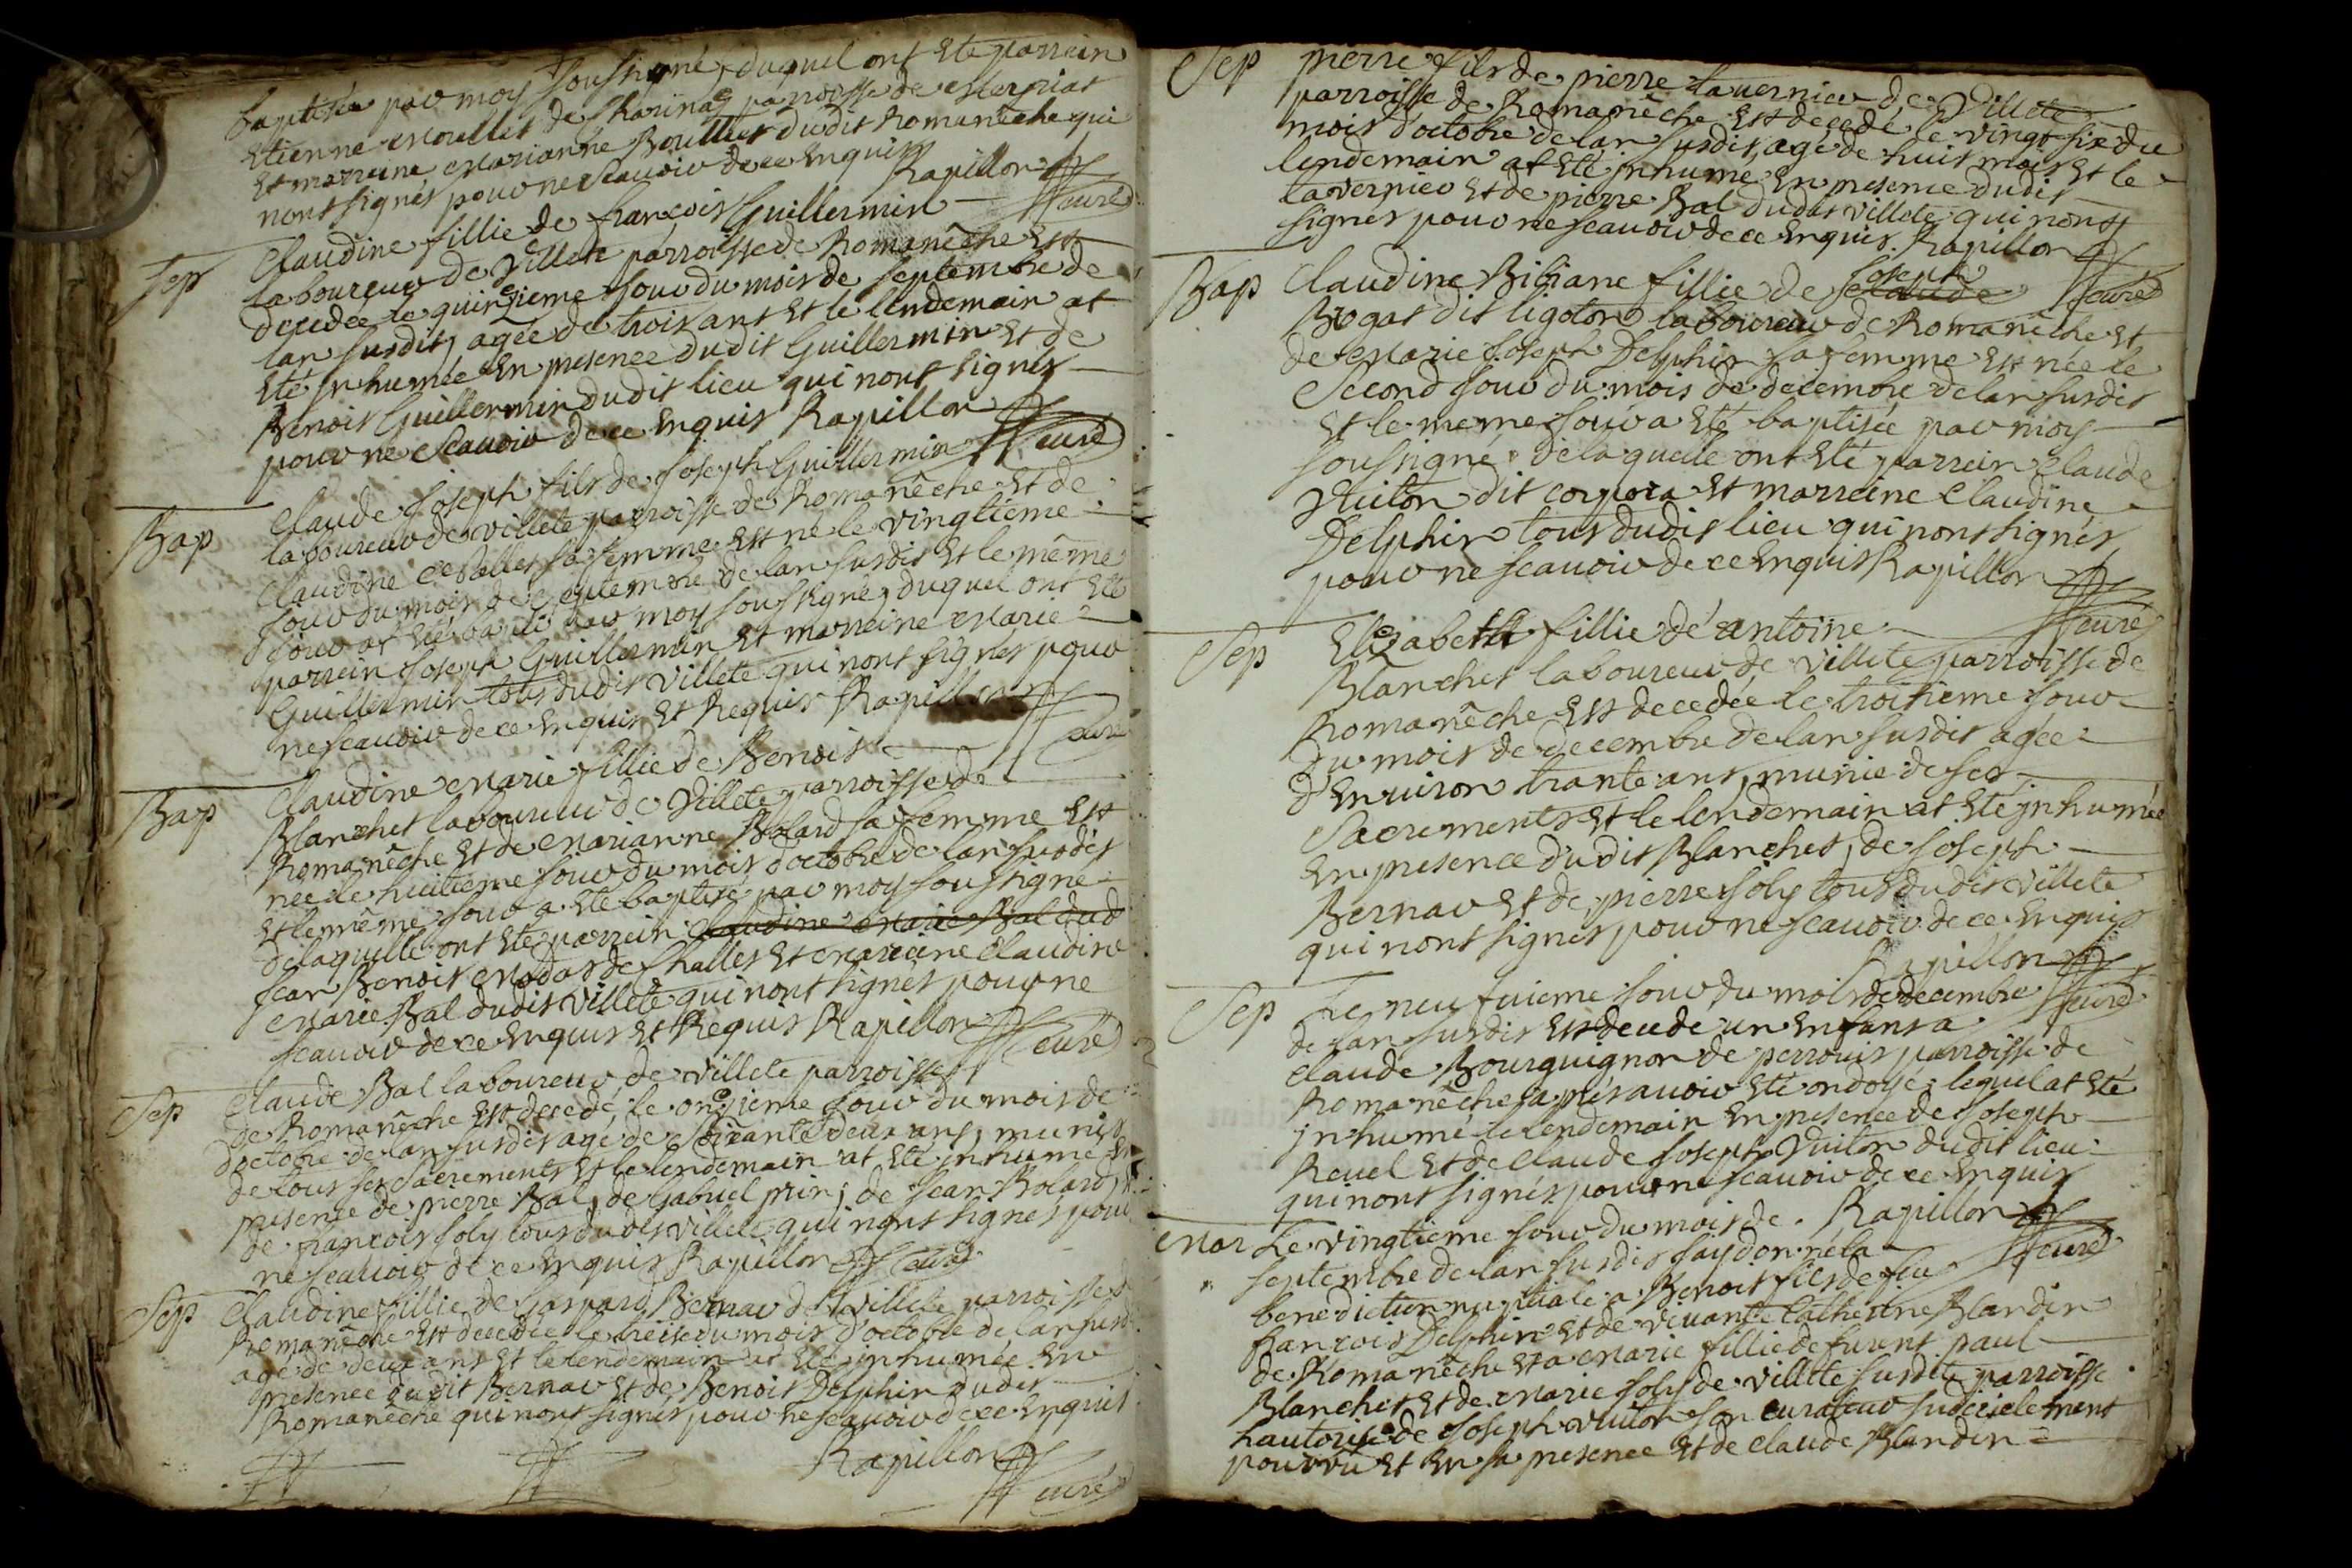 baptisée par moy soussigné, duquel ont été parrein
Etienne Moullet de parroisse de
et marreine Marianne Boullier dudit Romanêche qui
nont signés pour ne scavoir de ce enquis
Rapillon
curé
Sep
Claudine fillie de francois Guillermin
laboureur de Villete parroisse de Romanêche est
decedée le quinzieme jour du mois de septembre de
lan susdit, agée de trois ans et le lendemain at
été jnhumée en presence dudit Guillermin et de
Benoit Guillermin dudit lieu qui nont signés
pour ne scavoir de ce enquis Rapillon
curé
Bap
Claude Joseph fils de Joseph Guillermin
laboureur de villete parroisse de Romanêche et de
Claudine sa femme est né le vingtieme
jour du mois de septembre de lan susdit et le même
jour at été par moy soussigné, duquel ont été
parrein Joseph Guillermin et marreine Marie
Guillermin tous dudit Villete qui nont signés pour
ne scavoir de ce enquis et Requis Rapillon
curé
Bap
Claudine Marie fillie de Benoit
Blanchet laboureur de Villete parroisse de
Romanêche et de Marianne Bolard sa femme est
née le huitieme jour du mois d'octobre de lan susdit
et le même jour a été baptisé par moy soussigné
delaquelle ont été parrein claudine marie Bal dud
Jean Benoit de Challes et Marreine Claudine
Marie Bal dudit Villete qui nont signés pour ne
scavoir de ce enquis et Requis Rapillon
curé
Sep
Claude Bal laboureur de villete parroisse
de Romanêche est decedé le onzieme jour du mois de
d'octobre de lan susdit agé de soixante deux ans, munis
de tous ses sacrements et le lendemain at été jnhumé en
presence de pierre Bal, de Gabriel prin, de Jean Bolard,
de francois Joly tous dudit villete qui nont signés pour
ne scavoir de ce enquis Rapillon curé
Sep
Claudine fillie de Gaspard Bernar de Villete parroisse de
Romanêche est decedée le treize du mois d'octobre de lan susd
agé de deux ans et le lendemain at été jnhumée en
presence dudit Bernar et de Benoit Delphin dudit
Romanêche qui nont signés pour ne scavoir de ce enquis
Rapillon
curé
Sep
pierre fils de pierre tavernier de Villete
parroisse de Romanêche est decedé le vingt six du
mois d'octobre de lan susdit, agé de huit mois et le
lendemain at été jnhumé en presence dudit
tavernier et de pierre Bal dudit villete qui nont
signés pour ne scavoir de ce enquis. Rapillon
curé
Bap
Claudine Bibiane fillie de Joseph claude
Brogat dit ligoton laboureur de Romanêche et
de Marie Joseph Delphin sa femme est née le
second jour du mois de decembre de lan susdit
et le meme jour a été baptisée par moy
soussigné delaquelle ont été parrein Claude
Vuiton dit corpora et marreine Claudine
Delphin tous dudit lieu qui nont signés
pour ne scavoir de ce enquis Rapillon
curé
Sep
Elizabeth fillie de antoine
Blanchet laboureur de Villete parroisse de
Romanêche est decedée le troisieme jour
du mois de decembre de lan susdit agée
d'environ trante ans, munie de ses
sacrements et le lendemain at été jnhumée
en presence dudit Blanchet, de Joseph
Bernar et de pierre Joly tous dudit villete
qui nont signés pour ne scavoir de ce enquis
Rapillon
curé
Sep
Le neufvieme jour du mois de decembre
de lan susdit est decedé un enfant a
Claude Bourguignon de perrouis parroisse de
Romanêche apres avoir été ondoyé, lequel at été
jnhumé le lendemain en presence de Joseph
Revel et de Claude Joseph Vuiton dudit lieu
qui nont signés pour ne scavoir de ce enquis
Rapillon
curé
Mar
Le vingtieme jour du mois de
septembre de lan susdit jay donné la
benediction nuptiale a Benoit fils de feu
francois Delphin et de vivante Catherine Blandin
de Romanêche et a Marie fillie de furent paul
Blanchet et de Marie Joly de villete susdite parroisse
hautorisé de Joseph vuiton son curateur judicielement
pourvu et en sa presence et de claude Blandin